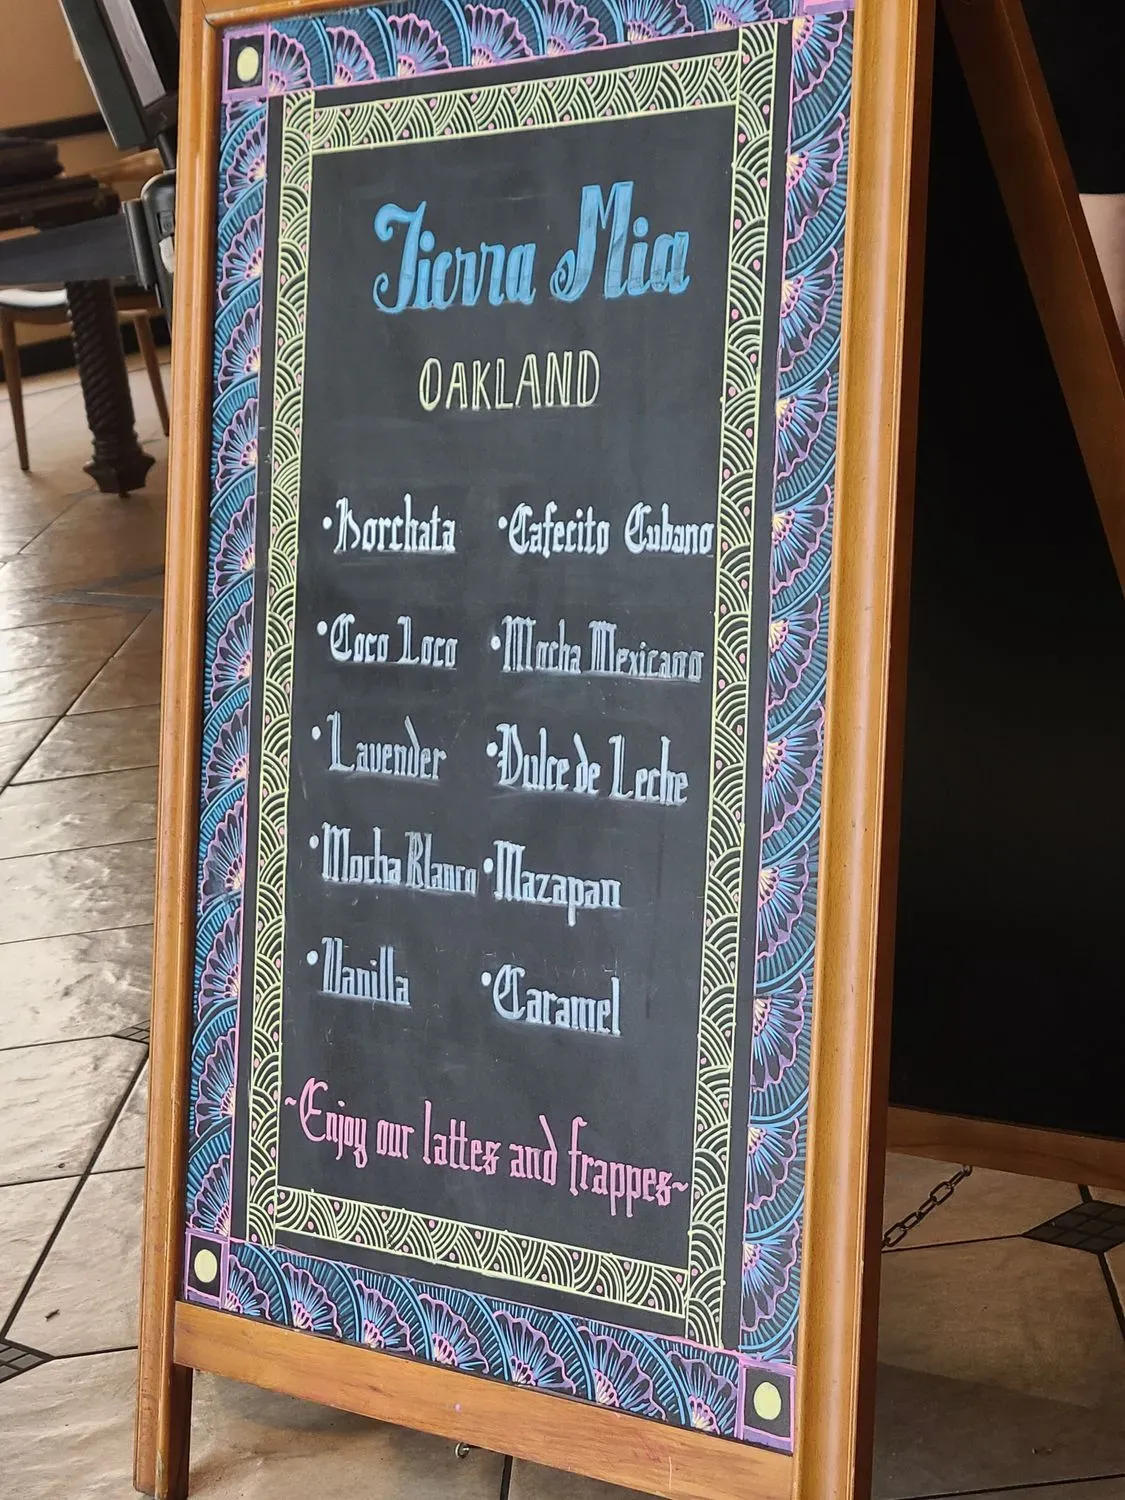 Tierra Mia
OAKLAND
•Horchata •Cafecito Cubano
•Coco Loco •Mocha Mexicano
•Lavender •Dulce de Leche
•Mocha Blanco •Mazapan
•Vanilla •Caramel
~Enjoy our lattes and frappes~